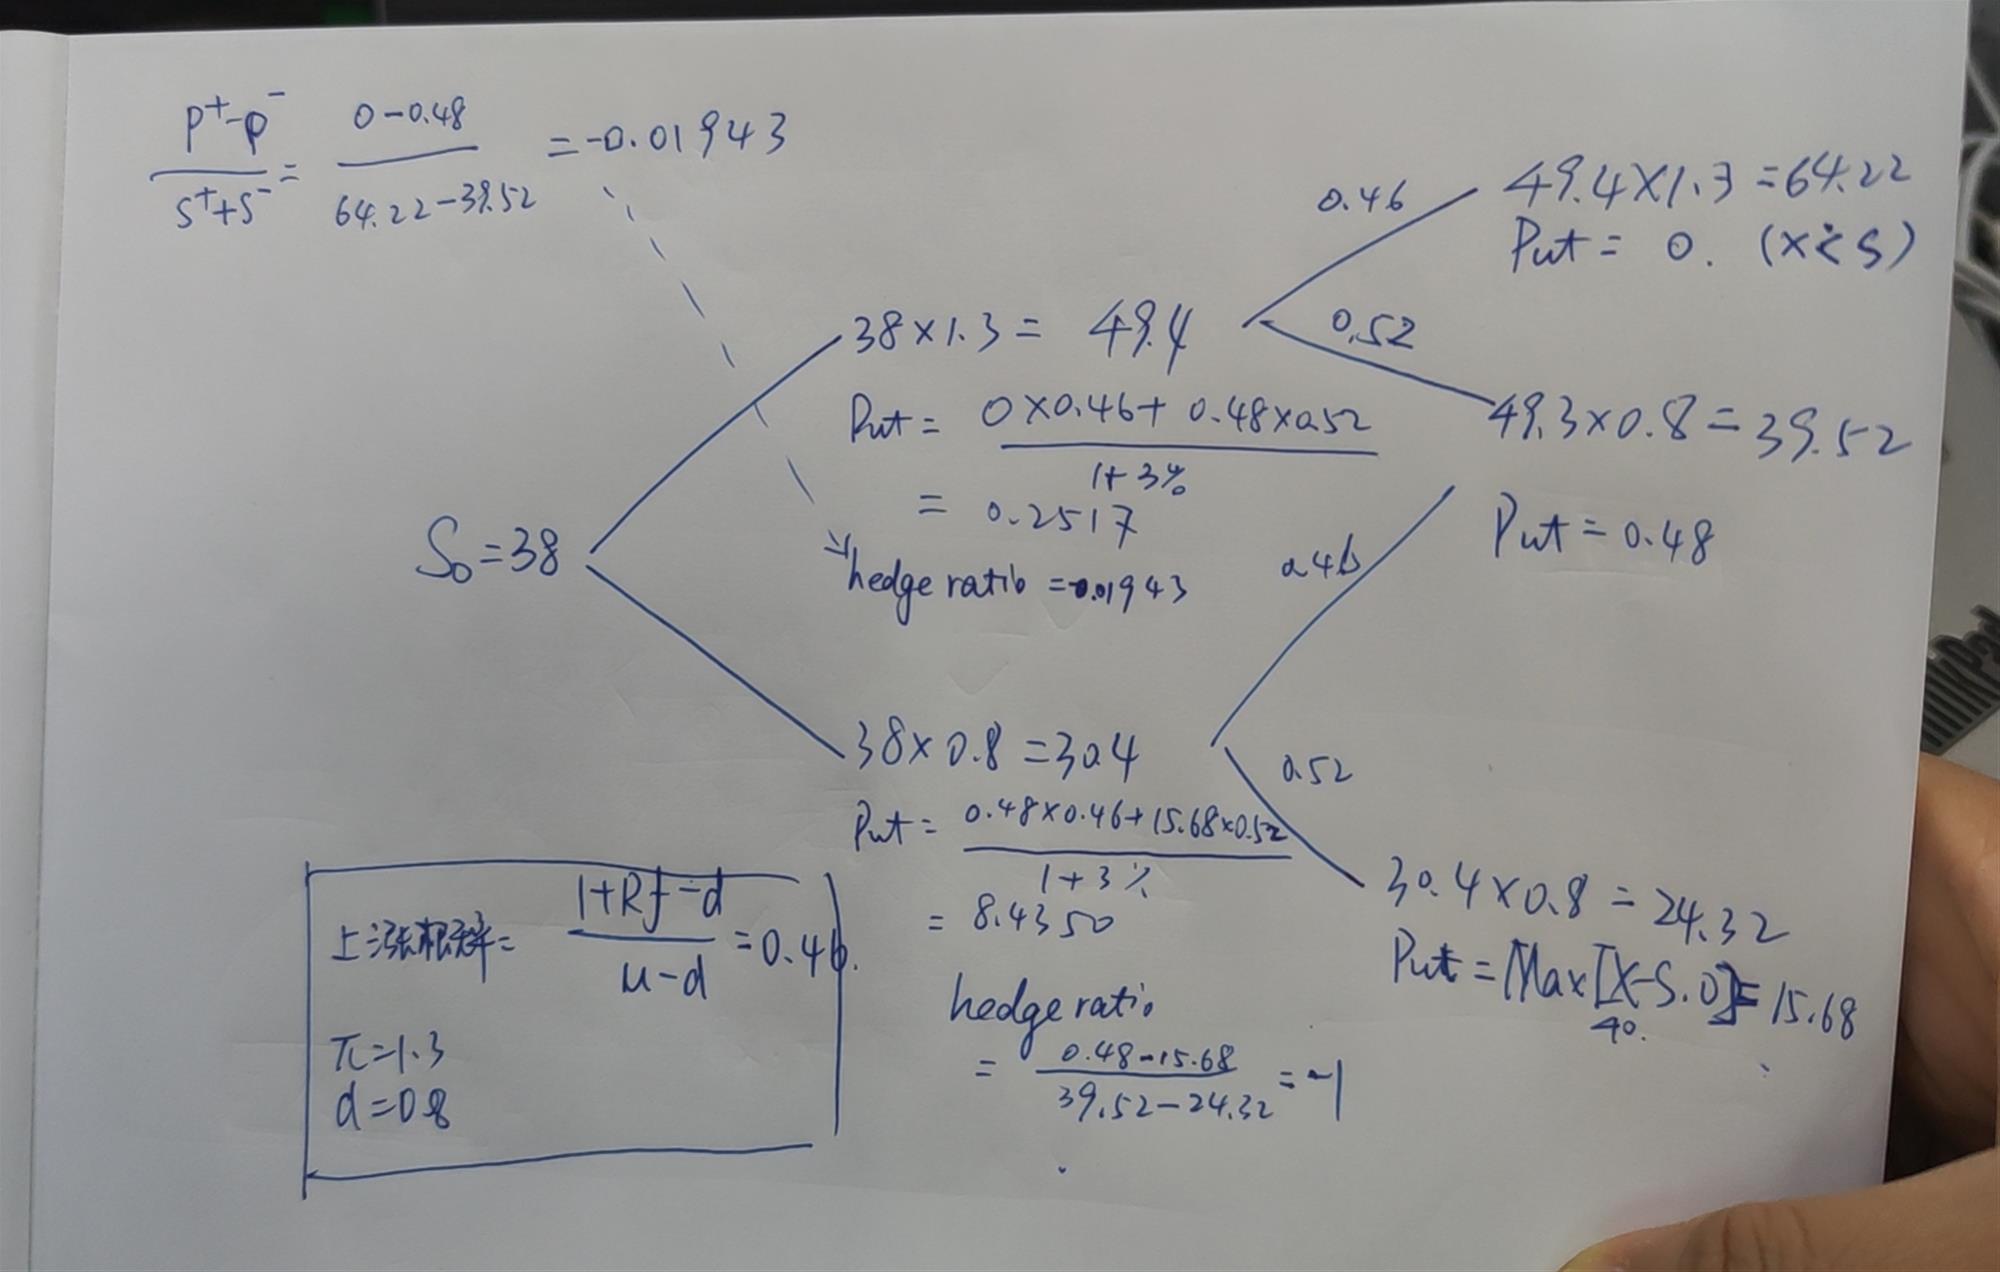 P⁺-P⁻ / S⁺+S⁻ = 0-0.48 / 64.22-39.52 = -0.01943
0.46
49.4×1.3=64.22
Put= 0. (X<S)
38×1.3= 49.4
0.52
49.3×0.8=39.52
Put= 0×0.46+ 0.48×0.52 / 1+3%
= 0.2517
Put=0.48
S₀=38
0.46
hedge ratio =-0.01943
38×0.8=30.4
0.52
Put= 0.48×0.46+15.68×0.52 / 1+3%
= 8.4350
30.4×0.8=24.32
Put=Max[X-S.0]=15.68
40.
hedge ratio
= 0.48-15.68 / 39.52-24.32 = -1
上涨概率= 1+Rf-d / u-d =0.46.
π=1.3
d=0.8